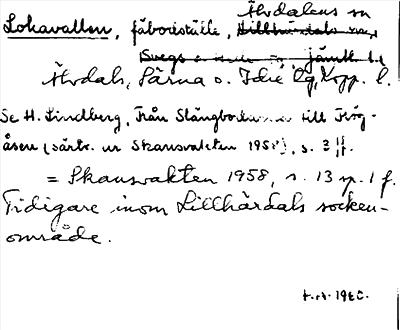 Älvdalens sn
Lokavallen, fäboställe, Lillhärdals sn,
Svegs Jämtl. l.
Älvdals, Särna o. Idre tg, Kopp. l.
Se H. Lindberg, Från Slängboda till Hög-
åsen (särtr. ur Skansvakten 1958), s. 3 ff.
= Skansvakten 1958, s. 13 sp. 1 f.
Tidigare inom Lillhärdals socken-
område.
1960.